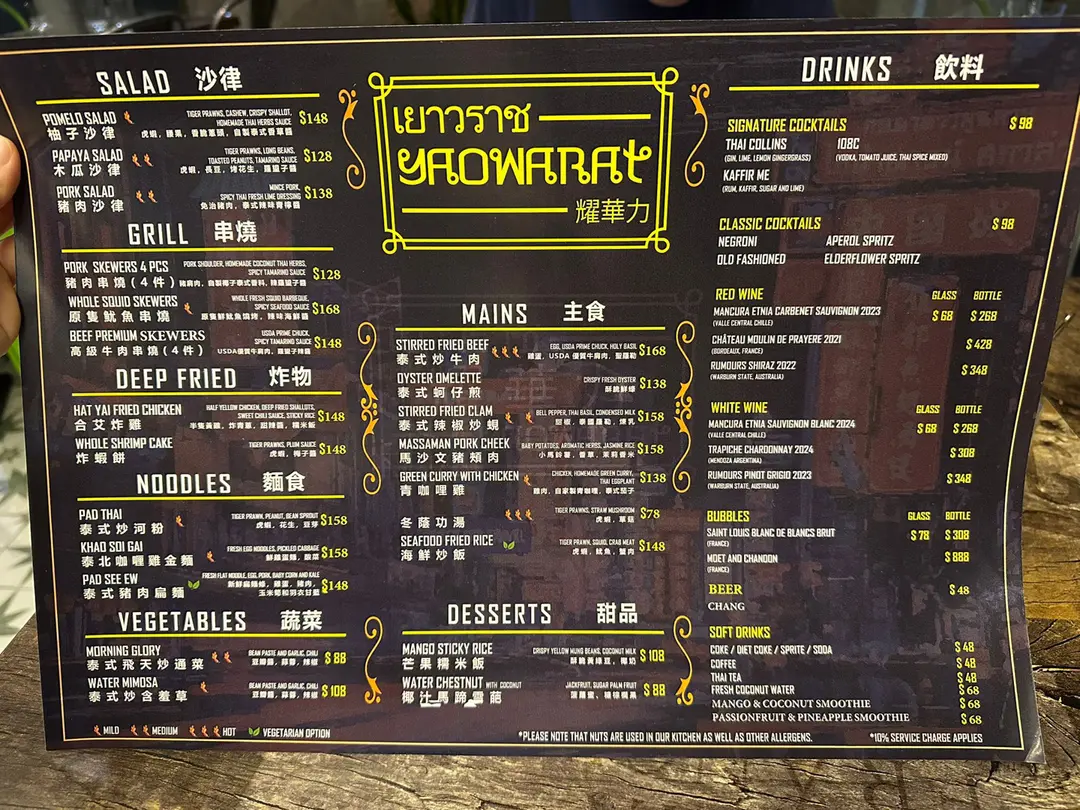 SALAD 沙律
POMELO SALAD
柚子沙律
TIGER PRAWNS, CASHEW, CRISPY SHALLOT,
HOMEMADE THAI HERBS SAUCE
虎蝦，腰果，香脆蔥頭，自製泰式香草醬
$148
PAPAYA SALAD
木瓜沙律
TIGER PRAWNS, LONG BEANS,
TOASTED PEANUTS, TAMARIND SAUCE
虎蝦，長豆，烤花生，羅望子醬
$128
PORK SALAD
豬肉沙律
MINCE PORK,
SPICY THAI FRESH LIME DRESSING
免治豬肉，泰式辣味青檸醬
$138
GRILL 串燒
PORK SKEWERS 4 PCS
豬肉串燒（4件）
PORK SHOULDER, HOMEMADE COCONUT THAI HERBS,
SPICY TAMARIND SAUCE
豬肩肉，自製椰子泰式香料，辣羅望子醬
$128
WHOLE SQUID SKEWERS
原隻魷魚串燒
WHOLE FRESH SQUID BARBEQUE,
SPICY SEAFOOD SAUCE
原隻鮮魷魚燒烤，辣味海鮮醬
$168
BEEF PREMIUM SKEWERS
高級牛肉串燒（4件）
USDA PRIME CHUCK,
SPICY TAMARIND SAUCE
USDA優質牛肩肉，羅望子辣醬
$148
DEEP FRIED 炸物
HAT YAI FRIED CHICKEN
合艾炸雞
HALF YELLOW CHICKEN, DEEP FRIED SHALLOTS,
SWEET CHILI SAUCE, STICKY RICE
半隻黃雞，炸青蔥，甜辣醬，糯米飯
$148
WHOLE SHRIMP CAKE
炸蝦餅
TIGER PRAWNS, PLUM SAUCE
虎蝦，梅子醬
$148
NOODLES 麵食
PAD THAI
泰式炒河粉
TIGER PRAWN, PEANUT, BEAN SPROUT
虎蝦，花生，豆芽
$158
KHAO SOI GAI
泰北咖喱雞金麵
FRESH EGG NOODLES, PICKLED CABBAGE
鮮雞蛋麵，酸菜
$158
PAD SEE EW
泰式豬肉扁麵
FRESH FLAT NOODLE, EGG, PORK, BABY CORN AND KALE
新鮮扁麵條，雞蛋，豬肉，
玉米筍和羽衣甘藍
$148
VEGETABLES 蔬菜
MORNING GLORY
泰式飛天炒通菜
BEAN PASTE AND GARLIC, CHILI
豆瓣醬，蒜蓉，辣椒
$88
WATER MIMOSA
泰式炒含羞草
BEAN PASTE AND GARLIC, CHILI
豆瓣醬，蒜蓉，辣椒
$108
MILD MEDIUM HOT VEGETARIAN OPTION
เยาวราช
YAOWARAT
耀華力
MAINS 主食
STIRRED FRIED BEEF
泰式炒牛肉
EGG, USDA PRIME CHUCK, HOLY BASIL
雞蛋，USDA優質牛肩肉，聖羅勒
$168
OYSTER OMELETTE
泰式蚵仔煎
CRISPY FRESH OYSTER
酥脆鮮蠔
$138
STIRRED FRIED CLAM
泰式辣椒炒蜆
BELL PEPPER, THAI BASIL, CONDENSED MILK
甜椒，泰國羅勒，煉乳
$158
MASSAMAN PORK CHEEK
馬沙文豬頰肉
BABY POTATOES, AROMATIC HERBS, JASMINE RICE
小馬鈴薯，香草，茉莉香米
$158
GREEN CURRY WITH CHICKEN
青咖哩雞
CHICKEN, HOMEMADE GREEN CURRY,
THAI EGGPLANT
雞肉，自家製青咖哩，泰式茄子
$138
冬蔭功湯
TIGER PRAWNS, STRAW MUSHROOM
虎蝦，草菇
$78
SEAFOOD FRIED RICE
海鮮炒飯
TIGER PRAWN, SQUID, CRAB MEAT
虎蝦，魷魚，蟹肉
$148
DESSERTS 甜品
MANGO STICKY RICE
芒果糯米飯
CRISPY YELLOW MUNG BEANS, COCONUT MILK
酥脆黃綠豆，椰奶
$108
WATER CHESTNUT WITH COCONUT
椰汁馬蹄雪葩
JACKFRUIT, SUGAR PALM FRUIT
菠蘿蜜，糖棕櫚果
$88
*PLEASE NOTE THAT NUTS ARE USED IN OUR KITCHEN AS WELL AS OTHER ALLERGENS.
DRINKS 飲料
SIGNATURE COCKTAILS $98
THAI COLLINS
(GIN, LIME, LEMON GINGERGRASS)
108C
(VODKA, TOMATO JUICE, THAI SPICE MIXED)
KAFFIR ME
(RUM, KAFFIR, SUGAR AND LIME)
CLASSIC COCKTAILS $98
NEGRONI APEROL SPRITZ
OLD FASHIONED ELDERFLOWER SPRITZ
RED WINE GLASS BOTTLE
MANCURA ETNIA CARBENET SAUVIGNON 2023 $68 $268
(VALLE CENTRAL CHILLE)
CHÂTEAU MOULIN DE PRAYERE 2021 $428
(BORDEAUX, FRANCE)
RUMOURS SHIRAZ 2022 $348
(WARBURN STATE, AUSTRALIA)
WHITE WINE GLASS BOTTLE
MANCURA ETNIA SAUVIGNON BLANC 2024 $68 $268
(VALLE CENTRAL CHILLE)
TRAPICHE CHARDONNAY 2024 $308
(MENDOZA ARGENTINA)
RUMOURS PINOT GRIGIO 2023 $348
(WARBURN STATE, AUSTRALIA)
BUBBLES GLASS BOTTLE
SAINT LOUIS BLANC DE BLANCS BRUT $78 $308
(FRANCE)
MOET AND CHANDON $888
(FRANCE)
BEER $48
CHANG
SOFT DRINKS
COKE / DIET COKE / SPRITE / SODA $48
COFFEE $48
THAI TEA $48
FRESH COCONUT WATER $68
MANGO & COCONUT SMOOTHIE $68
PASSIONFRUIT & PINEAPPLE SMOOTHIE $68
*10% SERVICE CHARGE APPLIES